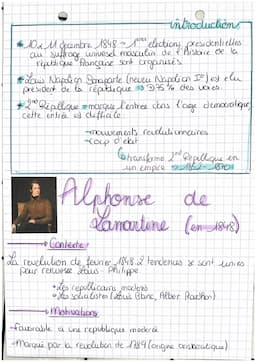 introduction
• 10 et 11 décembre 1848 → 1ères élections présidentielles
au suffrage universel masculin de l'histoire de la
république française sont organisés.
• Louis Napoléon Bonaparte (neveu Napoléon Ier) est élu
président de la république → 75% des voies.
• 2nd République = marque l'entrée dans l'age démocratique,
cette entrée est difficile
→ mouvements révolutionnaires
→ coup d'état
↳ transforme 2nd République en
un empire → 1852 - 1870
Alphonse de
Lamartine (en 1848)
→ Contexte:
La révolution de février 1848: 2 tendances se sont unies
pour renverser Louis-Philippe
• Les républicains modérés
• Les socialistes (Louis Blanc, Albert
→ Motivations
-favorable à une république modérée
-Marqué par la révolution de 1789 (origine aristocratique)